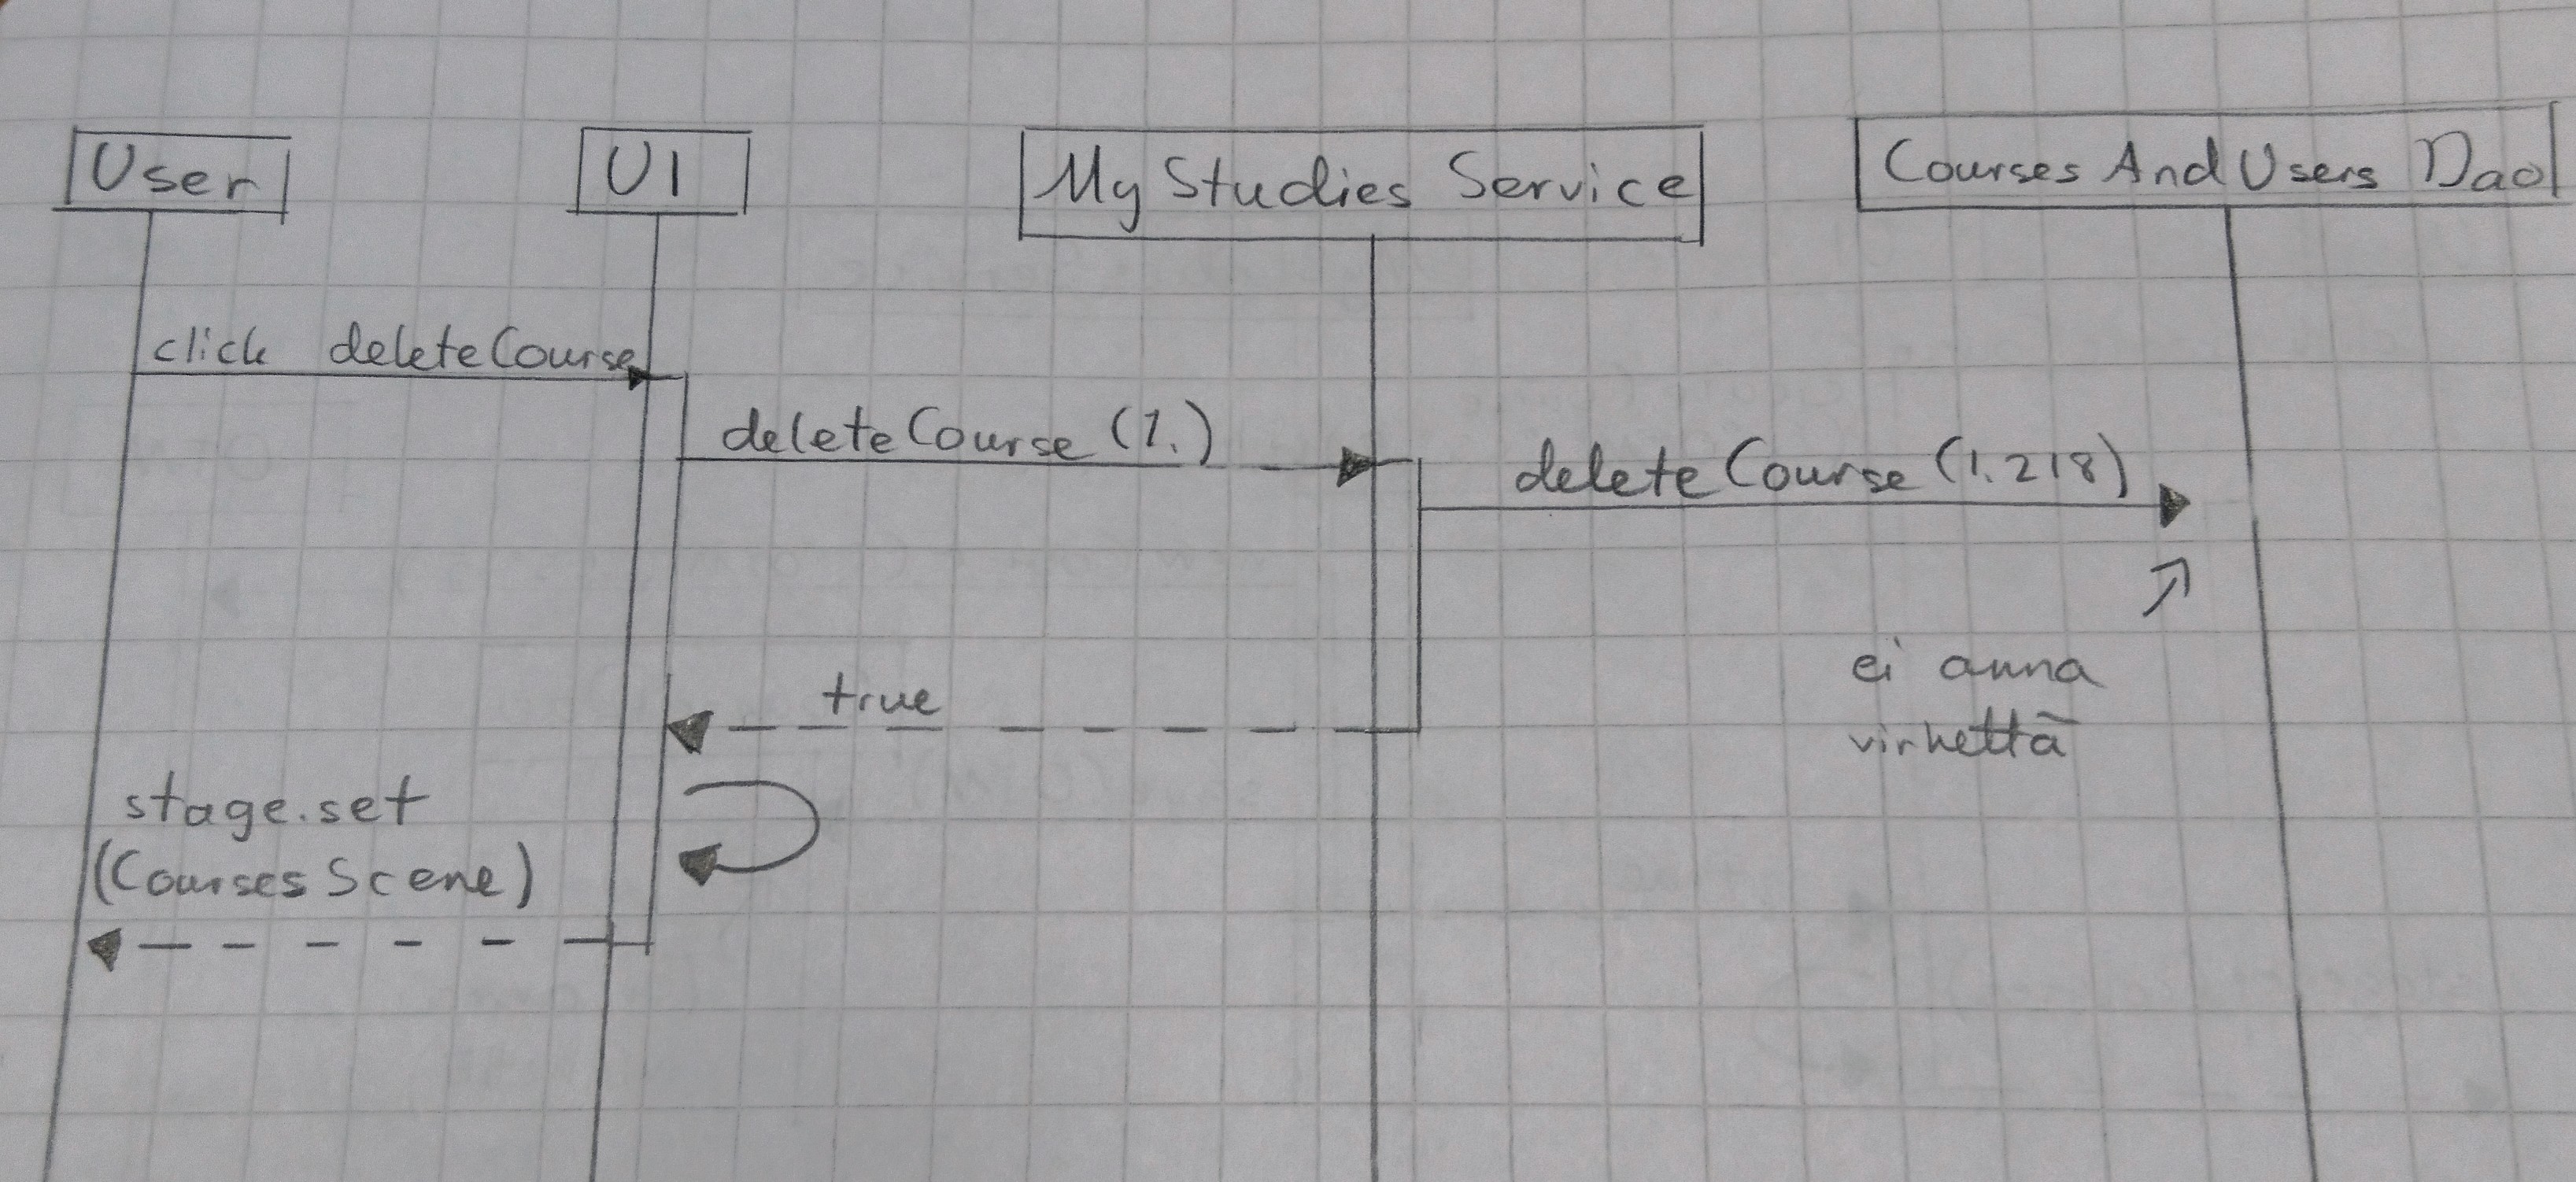 User
UI
My Studies Service
Courses And Users Dao
click deleteCourse
deleteCourse (1.)
deleteCourse (1.218)
ei anna
virhettä
true
stage.set
(CoursesScene)